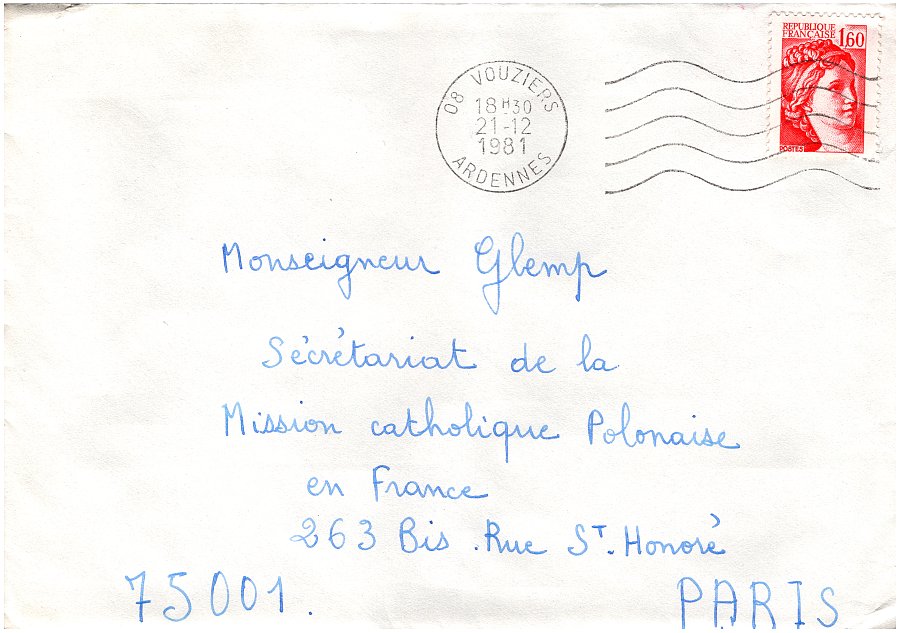 REPUBLIQUE
FRANÇAISE 1,60
POSTES
08 VOUZIERS
18H30
21-12
1981
ARDENNES
Monseigneur Glemp
Sécrétariat de la
Mission catholique Polonaise
en France
263 Bis. Rue ST. Honoré
75001. PARIS